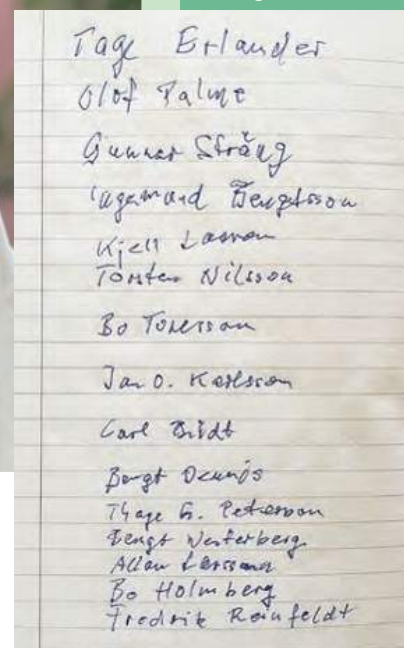 Tage Erlander
Olof Palme
Gunnar Sträng
Ingemund Bengtsson
Kjell Larsson
Torsten Nilsson
Bo Toresson
Jan O. Karlsson
Carl Bildt
Bengt Dennis
Thage G. Peterson
Bengt Westerberg
Allan Larsson
Bo Holmberg
Fredrik Reinfeldt